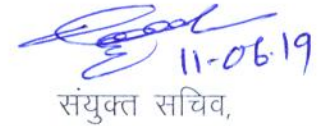 11-06-19
संयुक्त सचिव,